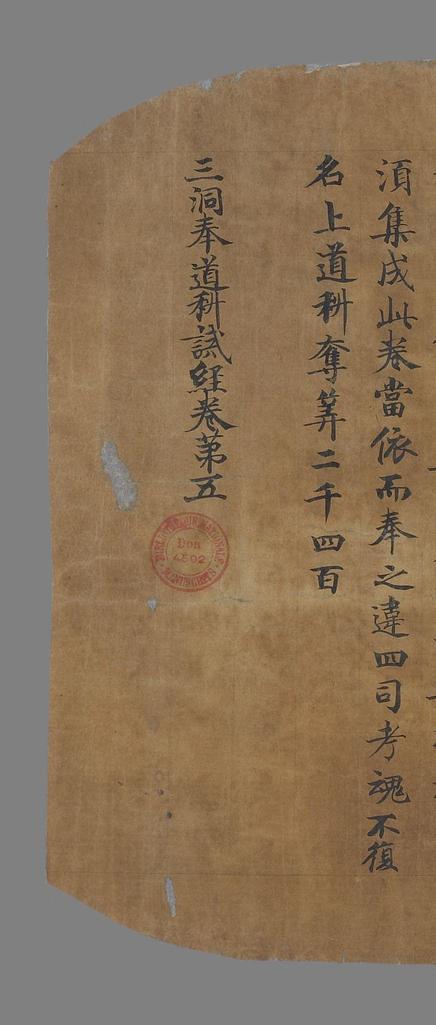 須集成此卷當依而奉之違四司考魂不復
名上道科奪筭二千四百
三洞奉道科誡經卷第五
Don
4502